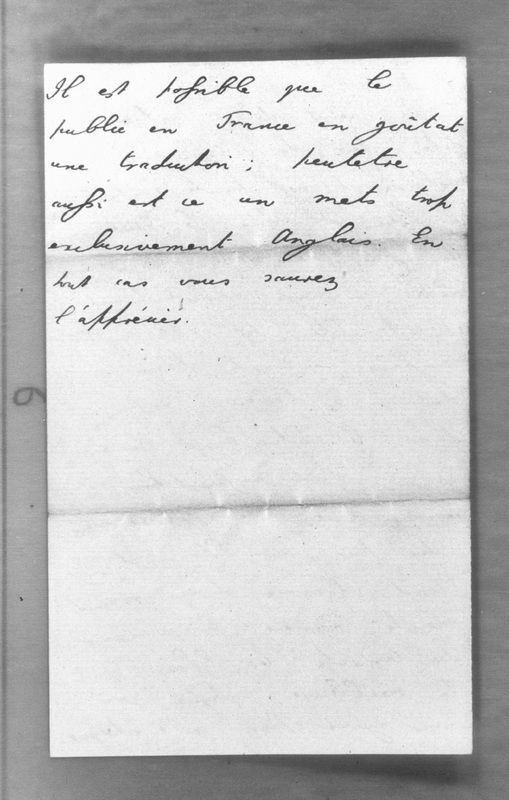 Il est possible que le
public en France en goûtat
une traduction; peutetre
aussi est ce un mets trop
exclusivement Anglais. En
tout cas vous saurez
l'apprécier.
9